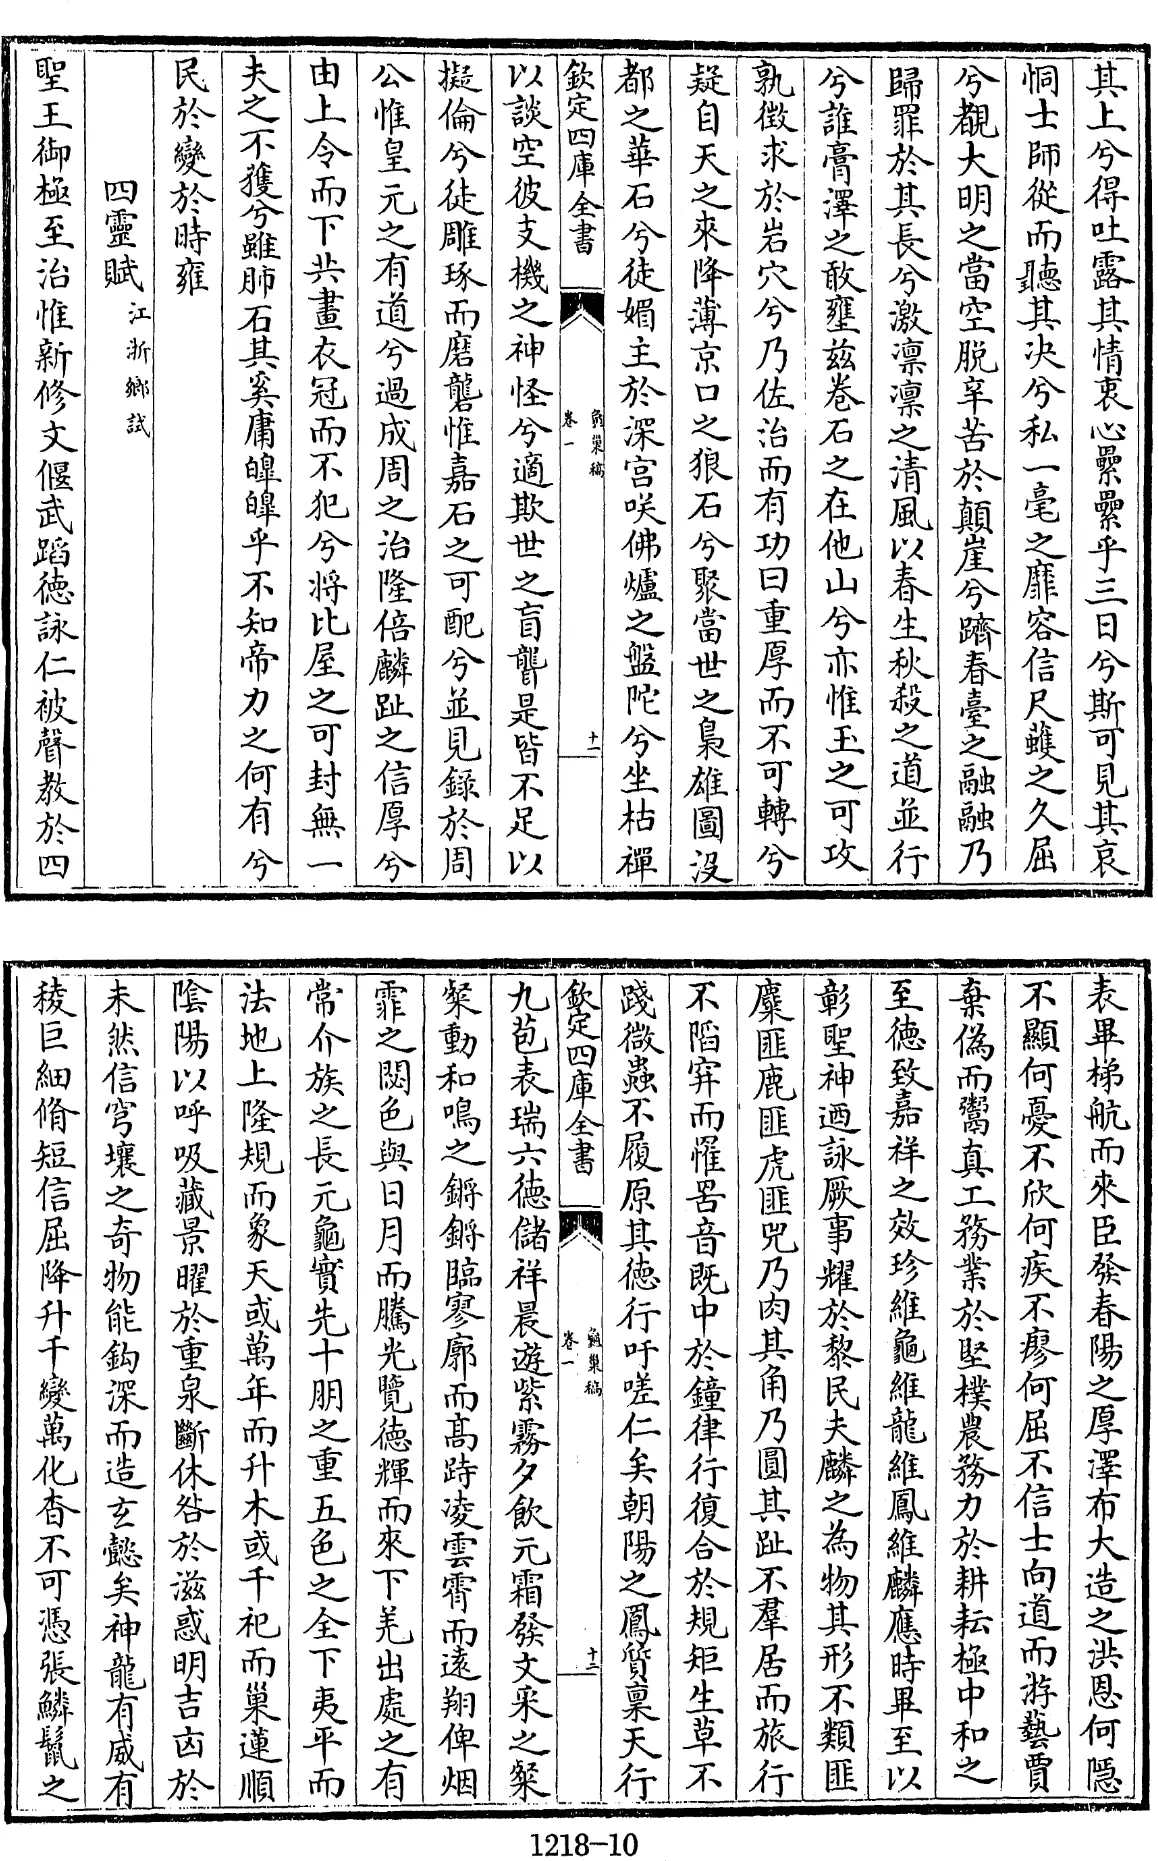 其上兮得吐露其情衷心纍纍乎三日兮斯可見其哀
恫士師從而聽其决兮私一毫之靡容信尺蠖之久屈
兮覩大明之當空脱辛苦於顛崖兮躋春臺之融融乃
歸罪於其長兮激凛凛之清風以春生秋殺之道並行
兮誰膏澤之敢壅兹卷石之在他山兮亦惟玉之可攻
孰徵求於岩穴兮乃佐治而有功曰重厚而不可轉兮
疑自天之來降薄京口之狼石兮聚當世之梟雄圖没
都之華石兮徒媚主於深宫咲佛爐之盤陀兮坐枯禪
欽定四庫全書
龜巢稿
卷一
十一
以談空彼支機之神怪兮適欺世之盲聾是皆不足以
擬倫兮徒雕琢而磨礱惟嘉石之可配兮並見錄於周
公惟皇元之有道兮過成周之治隆倍麟趾之信厚兮
由上令而下共畫衣冠而不犯兮將比屋之可封無一
夫之不獲兮雖肺石其奚庸皥皥乎不知帝力之何有兮
民於變於時雍
四靈賦 江浙鄉試
聖王御極至治惟新修文偃武蹈德詠仁被聲教於四
表畢梯航而來臣發春陽之厚澤布大造之洪恩何隱
不顯何憂不欣何疾不瘳何屈不信士向道而游藝賈
棄偽而鬻真工務業於堅樸農務力於耕耘極中和之
至德致嘉祥之效珍維龜維龍維鳳維麟應時畢至以
彰聖神迺詠厥事耀於黎民夫麟之為物其形不類匪
麋匪鹿匪虎匪兕乃肉其角乃圓其趾不羣居而旅行
不陷穽而罹罟音既中於鐘律行復合於規矩生草不
踐微蟲不履原其德行吁嗟仁矣朝陽之鳳質禀天行
欽定四庫全書
龜巢稿
卷一
十二
九苞表瑞六德儲祥晨遊紫霧夕飲元霜發文采之粲
粲動和鳴之鏘鏘臨寥廓而高跱凌雲霄而遠翔俾烟
霏之閟色與日月而騰光覽德輝而來下羌出處之有
常介族之長元龜實先十朋之重五色之全下夷平而
法地上隆規而象天或萬年而升木或千祀而巢蓮順
陰陽以呼吸藏景曜於重泉斷休咎於滋惑明吉凶於
未然信穹壤之奇物能鈎深而造玄懿矣神龍有威有
稜巨細脩短信屈降升千變萬化杳不可憑張鱗鬛之
1218-10